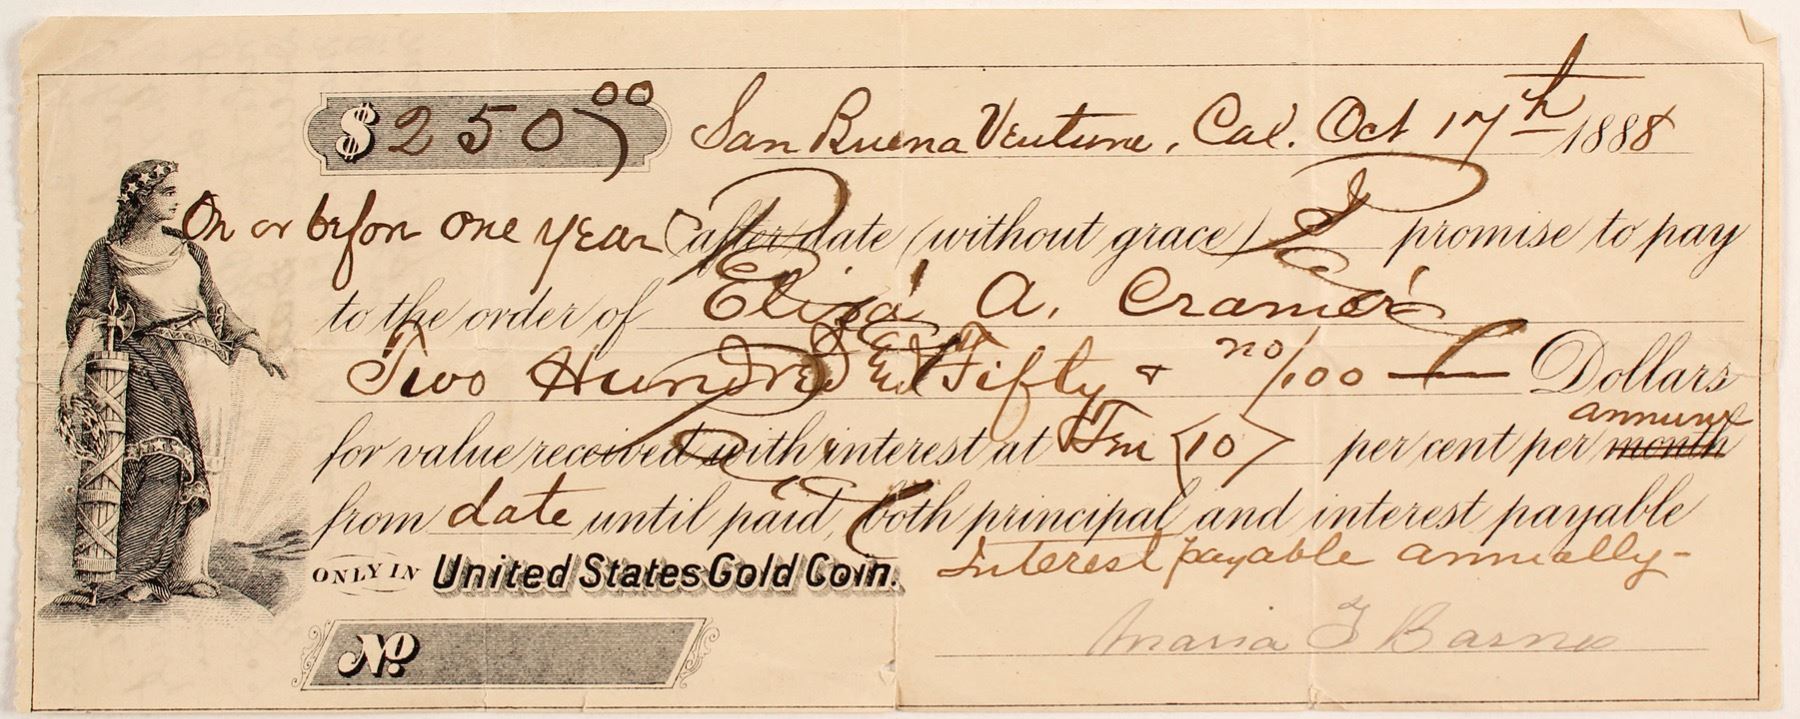 $250.00 San Buena Ventura, Cal. Oct 17th 1888
On or before one year (after date (without grace) I promise to pay
to the order of Eliza A. Cramer
Two Hundred & Fifty & no/100 Dollars
for value received with interest at Ten <10> per cent per month annum
from date until paid, both principal and interest payable
ONLY IN United States Gold Coin. Interest payable annually-
No Maria F Barnes